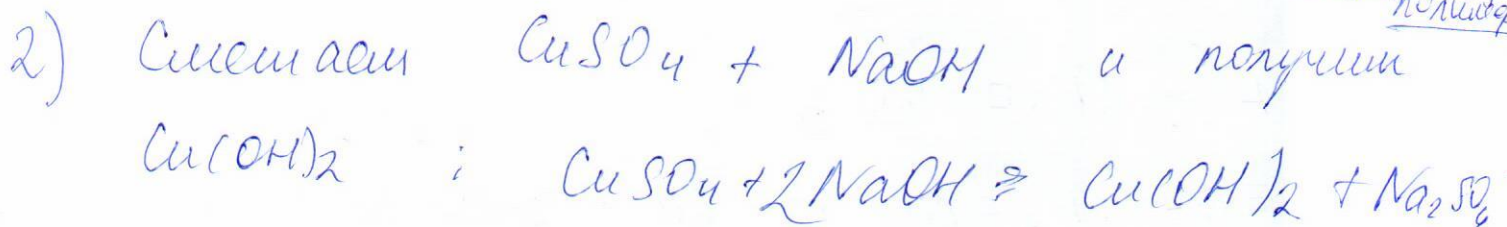 2) Смешаем CuSO4 + NaOH и получим
Cu(OH)2 ; CuSO4 + 2NaOH = Cu(OH)2 + Na2SO4